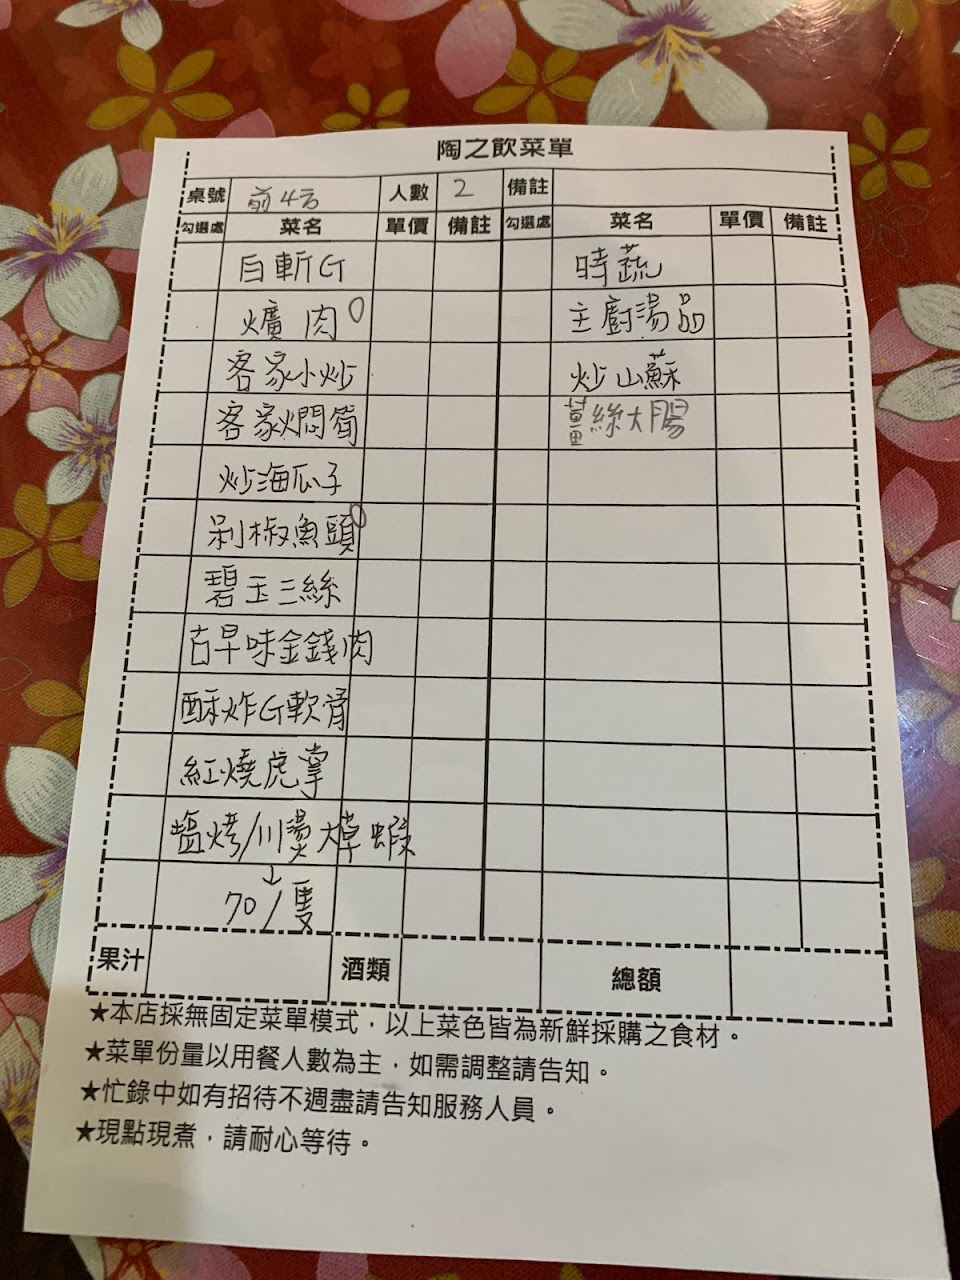 陶之飲菜單
桌號 人數 2 備註
勾選處 菜名 單價 備註 勾選處 菜名 單價 備註
白斬G 時蔬
爌肉 主廚湯品
客家小炒 炒山蘇
客家燜筍 薑絲大腸
炒海瓜子
剁椒魚頭
碧玉三絲
古早味金錢肉
酥炸G軟骨
紅燒虎掌
塩烤/川燙大草蝦
70/隻
果汁 酒類 總額
★本店採無固定菜單模式，以上菜色皆為新鮮採購之食材。
★菜單份量以用餐人數為主，如需調整請告知。
★忙錄中如有招待不週盡請告知服務人員。
★現點現煮，請耐心等待。